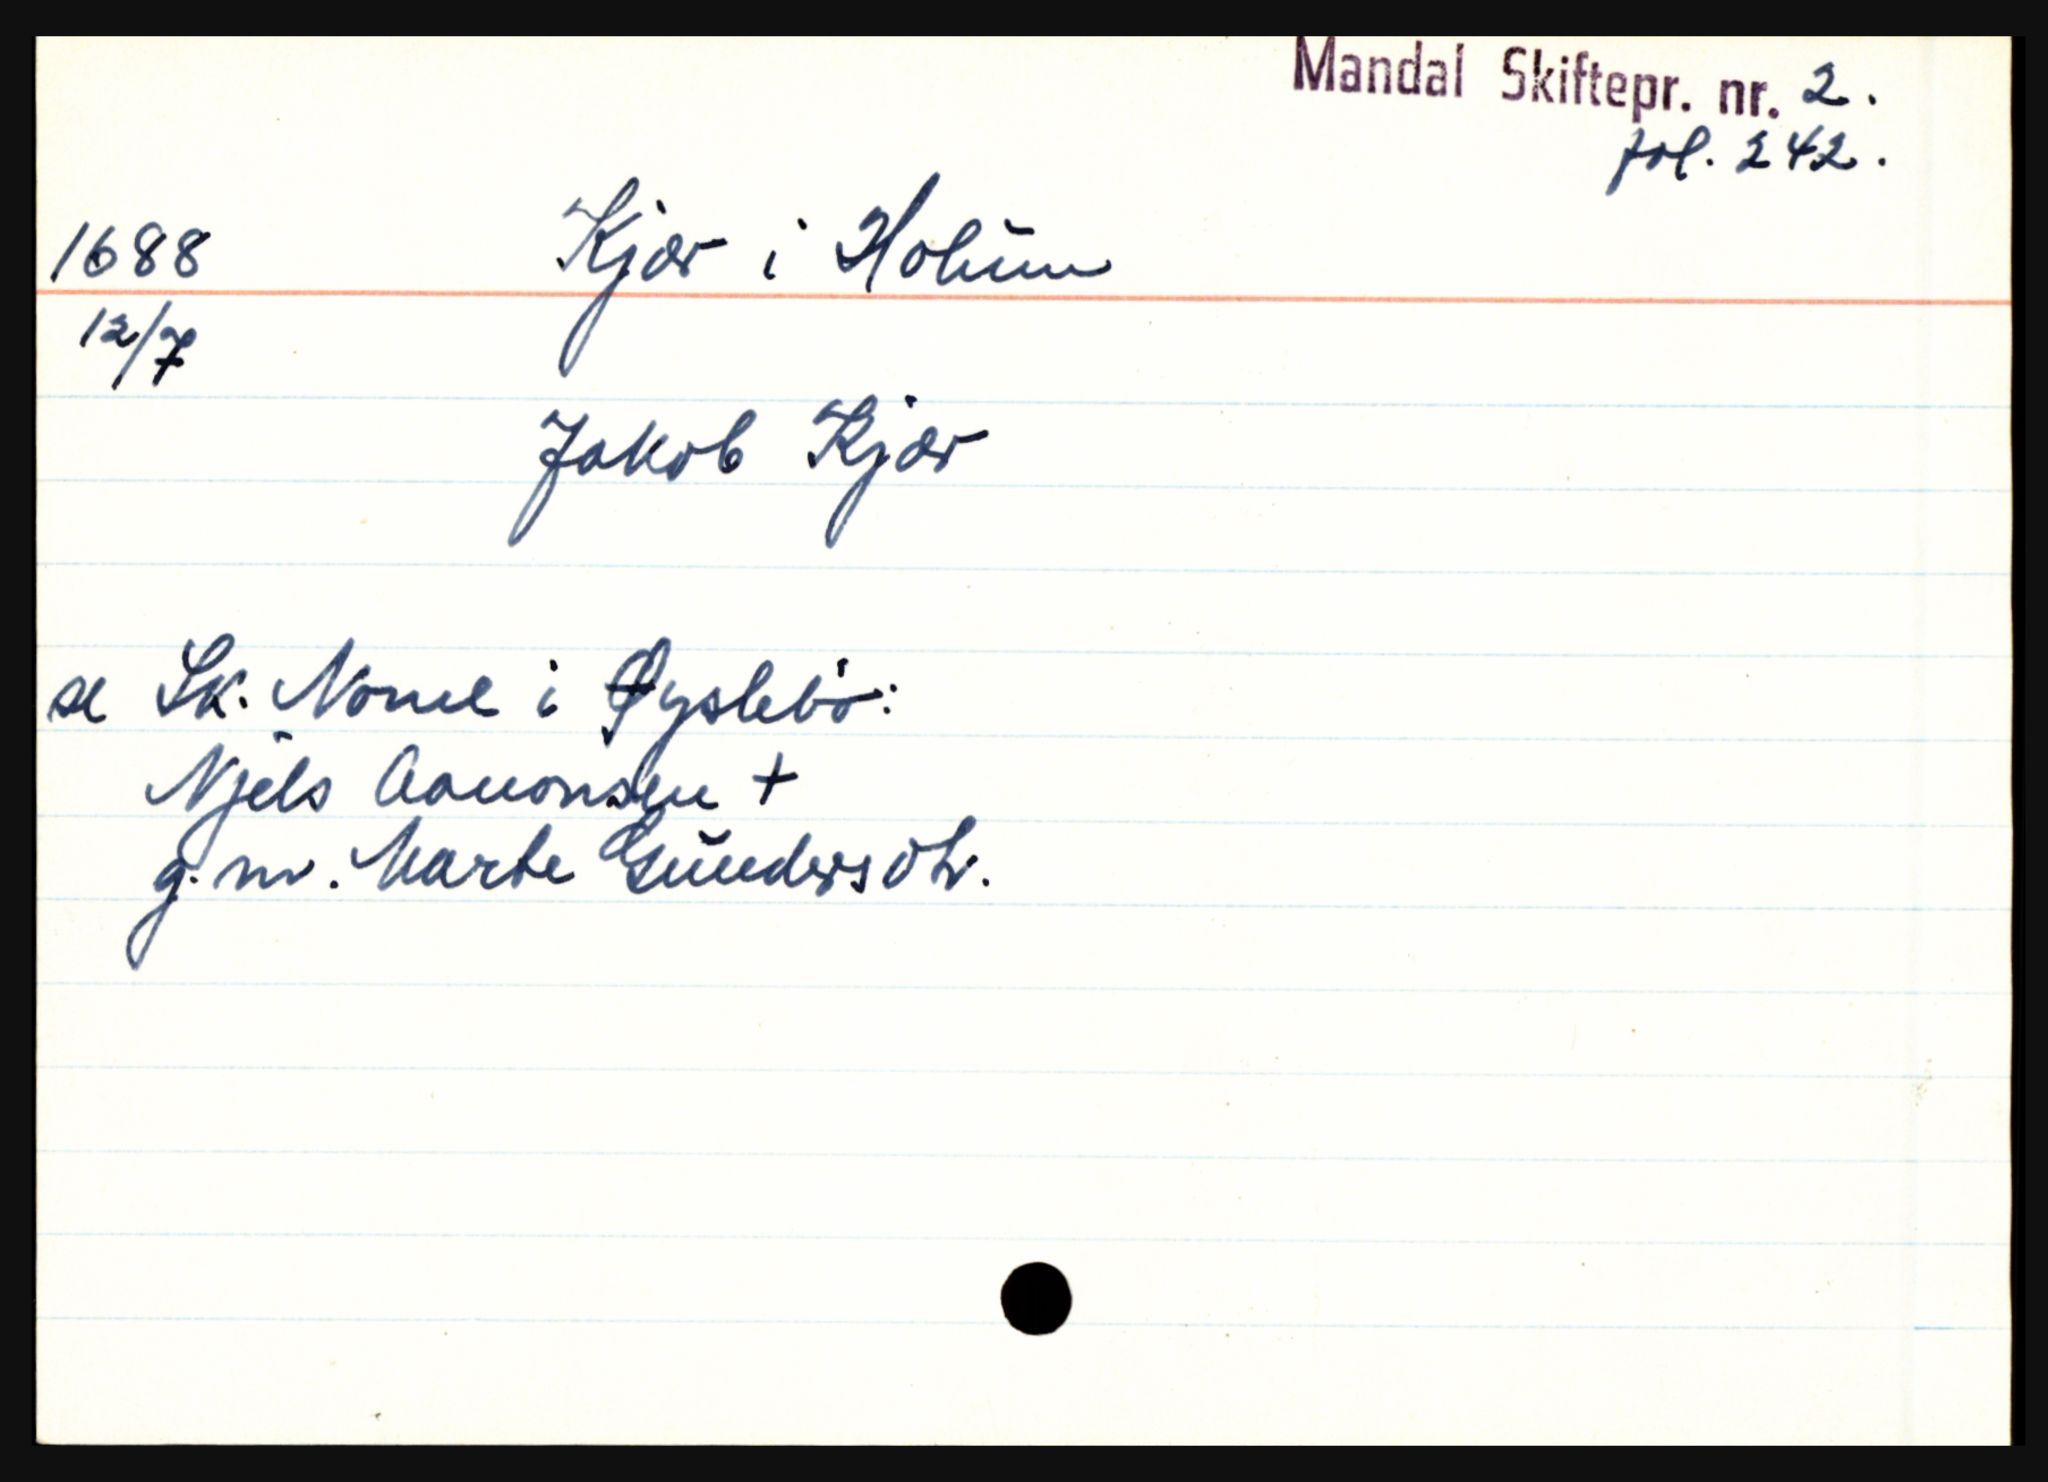 Mandal Skiftepr. nr. 2.
fol. 242.
1688 Kjær i Holum
12/7
Jakob Kjær
se Sk. Nome i Øyslebø:
Njels Aanonsen +
g. m. Marte Gundersdtr.